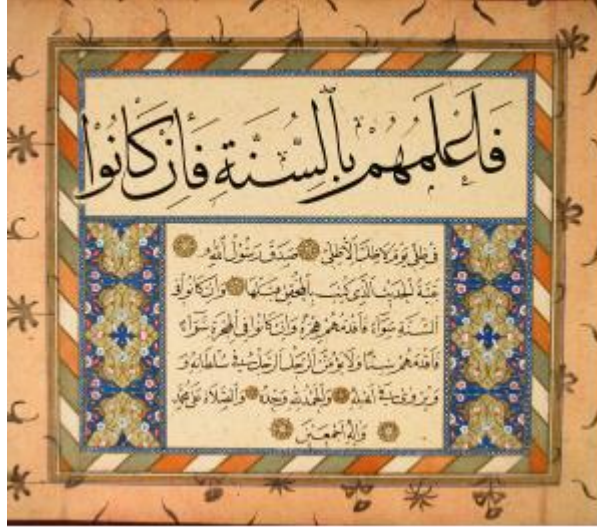 فَأَعْلَمُهُمْ بِالسُّنَّةِ فَإِنْ كَانُوا
فِي ظِلِّي يَوْمَ لَا ظِلَّ إِلَّا ظِلِّي صَدَقَ رَسُولُ اللهِ
الْحَدِيثِ الَّذِي كُتِبَ وَإِنْ كَانُوا فِي
السُّنَّةِ سَوَاءً فَأَقْدَمُهُمْ هِجْرَةً وَإِنْ كَانُوا فِي الْهِجْرَةِ سَوَاءً
فَأَقْدَمُهُمْ سِنًّا وَلَا يَؤُمَّنَّ الرَّجُلُ الرَّجُلَ فِي سُلْطَانِهِ وَ
وَيُرْوَى فِي أَهْلِهِ وَالْحَمْدُ لِلّهِ وَحْدَهُ وَالصَّلَاةُ عَلَى مُحَمَّدٍ
وَآلِهِ أَجْمَعِينَ